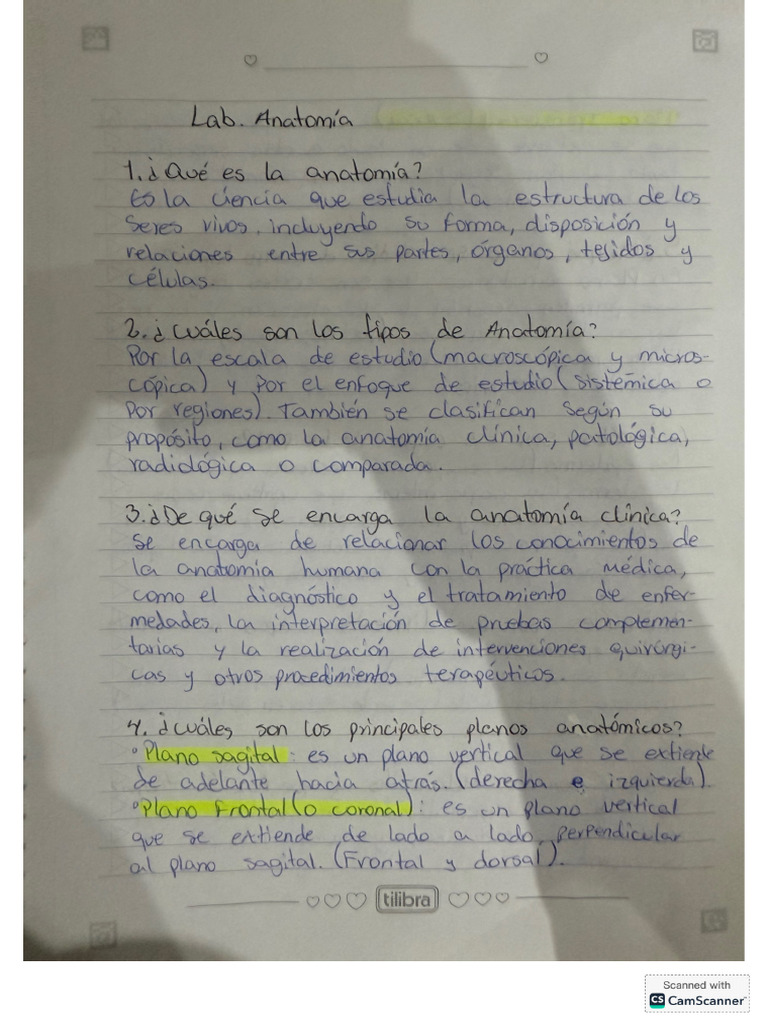 Lab. Anatomía
1. ¿Qué es la anatomía?
Es la ciencia que estudia la estructura de los
seres vivos, incluyendo su forma, disposición y
relaciones entre sus partes, órganos, tejidos y
células.
2. ¿Cuáles son los tipos de Anatomía?
Por la escala de estudio (macroscópica y micros-
cópica) y por el enfoque de estudio (sistémica o
por regiones). También se clasifican según su
propósito, como la anatomía clínica, patológica,
radiológica o comparada.
3. ¿De qué se encarga la anatomía clínica?
Se encarga de relacionar los conocimientos de
la anatomía humana con la práctica médica,
como el diagnóstico y el tratamiento de enfer-
medades, la interpretación de pruebas complemen-
tarias y la realización de intervenciones quirúrgi-
cas y otros procedimientos terapéuticos.
4. ¿Cuáles son los principales planos anatómicos?
°Plano sagital: es un plano vertical que se extiende
de adelante hacia atrás. (derecha e izquierda).
°Plano frontal (o coronal): es un plano vertical
que se extiende de lado a lado, perpendicular
al plano sagital. (Frontal y dorsal).
tilibra
Scanned with
CS CamScanner